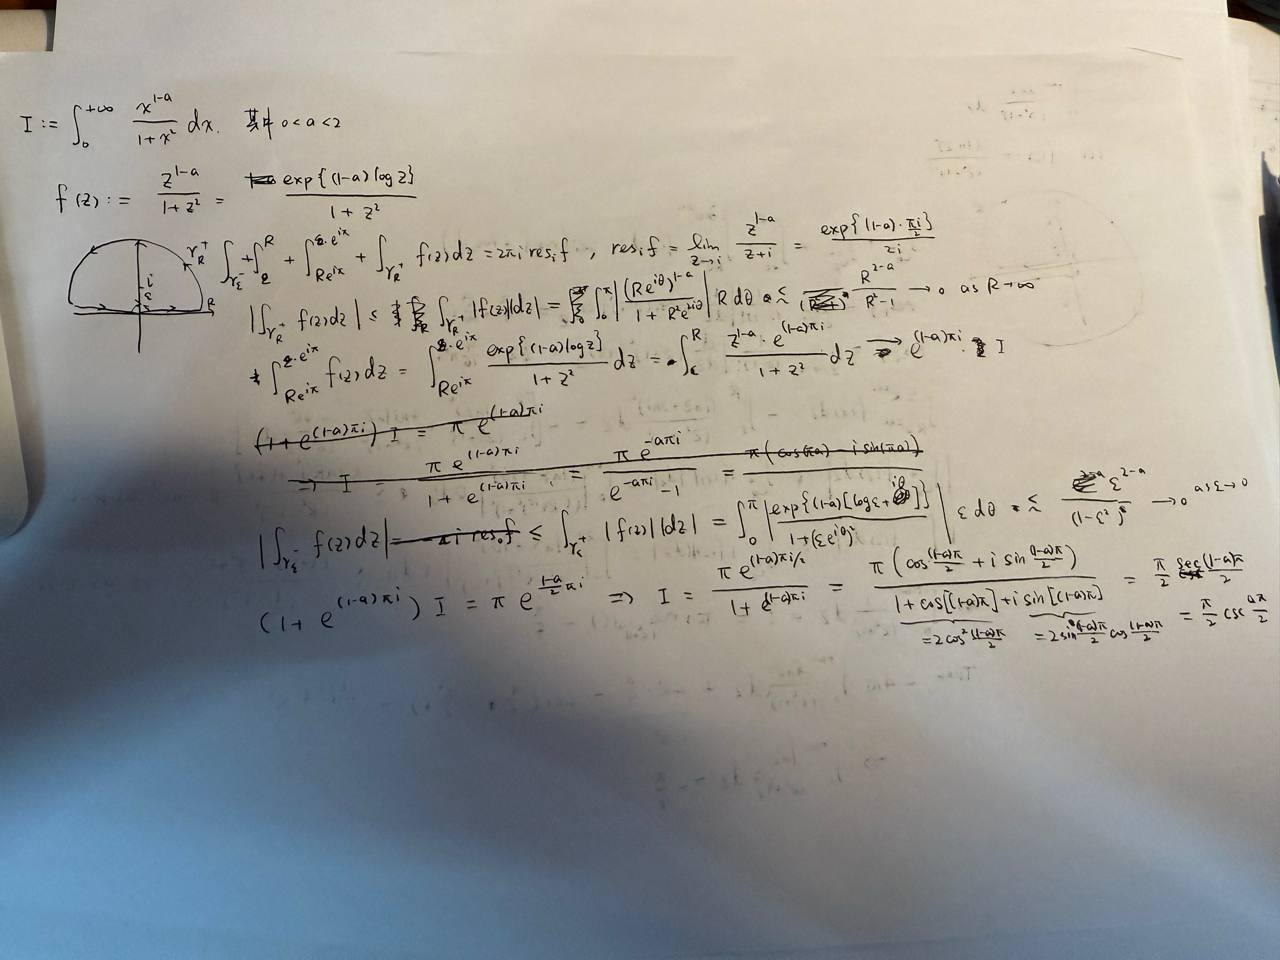 I := ∫_0^{+∞} x^{1-a}/(1+x²) dx. 其中 0<a<2
f(z) := z^{1-a}/(1+z²) = exp{(1-a)log z}/(1+z²)
∫_{γ_ε^-} + ∫_ε^R + ∫_{Re^{iπ}}^{ε·e^{iπ}} + ∫_{γ_R^+} f(z)dz = 2πi res_i f , res_i f = lim_{z→i} z^{1-a}/(z+i) = exp{(1-a)·πi/2}/2i
γ_R^+ i ε R
|∫_{γ_R^+} f(z)dz| ≤ ∫_{γ_R^+} |f(z)||dz| = ∫_0^π |(Re^{iθ})^{1-a}/(1+R²e^{2iθ})| R dθ ≲ R^{2-a}/(R²-1) → 0 as R→∞
∫_{Re^{iπ}}^{ε·e^{iπ}} f(z)dz = ∫_{Re^{iπ}}^{ε·e^{iπ}} exp{(1-a)log z}/(1+z²) dz = ∫_ε^R z^{1-a}·e^{(1-a)πi}/(1+z²) dz → e^{(1-a)πi}· I
(1+e^{(1-a)πi}) I = π e^{(1-a)πi}
⇒ I = π e^{(1-a)πi}/(1+e^{(1-a)πi}) = π e^{-aπi}/(e^{-aπi}-1) = π(cos(πa) - i sin(πa))
|∫_{γ_ε^-} f(z)dz| = -πi res_0 f ≤ ∫_{γ_ε^+} |f(z)||dz| = ∫_0^π |exp{(1-a)[log ε + iθ]}/(1+(εe^{iθ})²)| ε dθ ≲ ε^{2-a}/(1-ε²) → 0 as ε→0
(1+e^{(1-a)πi}) I = π e^{(1-a)/2 πi} ⇒ I = π e^{(1-a)πi/2}/(1+e^{(1-a)πi}) = π(cos (1-a)π/2 + i sin (1-a)π/2)/(1+cos[(1-a)π]+i sin[(1-a)π]) = π/2 sec (1-a)π/2
=2cos² (1-a)π/2 =2sin (1-a)π/2 cos (1-a)π/2 = π/2 csc aπ/2